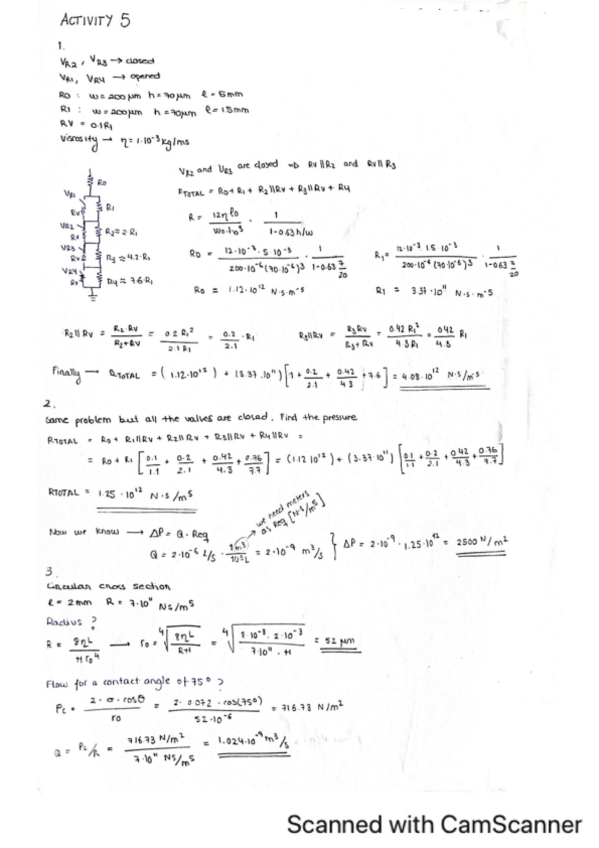 ACTIVITY 5
1.
VR2, VR3 → closed
VR1, VR4 → opened
R0 : w = 200μm h = 70μm ℓ = 5mm
R1 : w = 200μm h = 70μm ℓ = 1.5mm
RV = 0.1R1
Viscosity → η = 1·10⁻³ kg/ms
VR2 and VR3 are closed ⇒ RV||R2 and RV||R3
RTOTAL = R0 + R1 + R2||RV + R3||RV + R4
R0
VR1
RV
R1
VR2
RV
R2 = 2·R1
VR3
RV
R3 = 4.2·R1
VR4
RV
R4 = 7.6·R1
R = 12ηℓ0 / w0·h0³ · 1 / 1-0.63h/w
R0 = 12·10⁻³·5·10⁻³ / 200·10⁻⁶(70·10⁻⁶)³ · 1 / 1-0.63 7/20
R1 = 12·10⁻³·1.5·10⁻³ / 200·10⁻⁶(70·10⁻⁶)³ · 1 / 1-0.63 7/20
R0 = 1.12·10¹² N·s·m⁻⁵
R1 = 3.37·10¹¹ N·s·m⁻⁵
R2||RV = R2·RV / R2+RV = 0.2R1² / 2.1R1 = 0.2 / 2.1 · R1
R3||RV = R3RV / R3+RV = 0.42R1² / 4.3R1 = 0.42 / 4.3 R1
Finally → RTOTAL = (1.12·10¹²) + (3.37·10¹¹) [1 + 0.2/2.1 + 0.42/4.3 + 7.6] = 4.08·10¹² N·s/m⁵
2.
Same problem but all the valves are closed. Find the pressure
RTOTAL = R0 + R1||RV + R2||RV + R3||RV + R4||RV =
= R0 + R1 [0.1/1.1 + 0.2/2.1 + 0.42/4.3 + 0.76/7.7] = (1.12·10¹²) + (3.37·10¹¹) [0.1/1.1 + 0.2/2.1 + 0.42/4.3 + 0.76/7.7]
RTOTAL = 1.25·10¹² N·s/m⁵
we need meters
as Req [N·s/m⁵]
Now we know → ΔP = Q·Req
Q = 2·10⁻⁶ L/s · 1m³/10³L = 2·10⁻⁹ m³/s } ΔP = 2·10⁻⁹·1.25·10¹² = 2500 N/m²
3.
Circular cross section
ℓ = 2mm R = 7·10¹¹ Ns/m⁵
Radius?
R = 8ηL / πr0⁴ → r0 = ⁴√(8ηL / R·π) = ⁴√(8·10⁻³·2·10⁻³ / 7·10¹¹·π) = 52 μm
Flow for a contact angle of 75°?
Pc = 2·σ·cosθ / r0 = 2·0.072·cos(75°) / 52·10⁻⁶ = 716.73 N/m²
Q = Pc/R = 716.73 N/m² / 7·10¹¹ Ns/m⁵ = 1.024·10⁻⁹ m³/s
Scanned with CamScanner